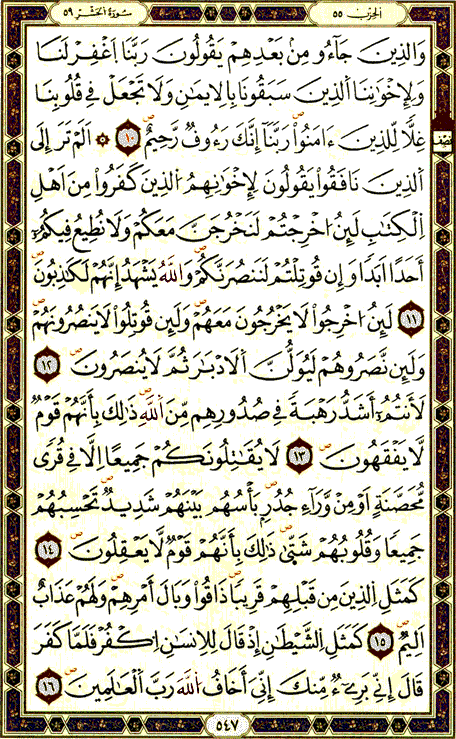 الحزب ٥٥
سورة الحشر ٥٩
وَالذِينَ جَآءُو مِنۢ بَعْدِهِمْ يَقُولُونَ رَبَّنَا اَ۪غْفِرْ لَنَا
وَلِإِخْوَٰنِنَا اَ۬لذِينَ سَبَقُونَا بِالِايمَٰنِ وَلَا تَجْعَلْ فِے قُلُوبِنَا
غِلّٗا لِّلذِينَ ءَامَنُواْ رَبَّنَآ إِنَّكَ رَءُوفٞ رَّحِيمٌۖ ١٠ ۞ اَلَمْ تَرَ إِلَى
اَ۬لذِينَ نَافَقُواْ يَقُولُونَ لِإِخْوَٰنِهِمُ اُ۬لذِينَ كَفَرُواْ مِنَ اَهْلِ
اِ۬لْكِتَٰبِ لَئِنُ ا۟خْرِجْتُمْ لَنَخْرُجَنَّ مَعَكُمْ وَلَا نُطِيعُ فِيكُمُۥٓ
أَحَداً اَبَداٗ وَإِن قُوتِلْتُمْ لَنَنصُرَنَّكُمْۖ وَاللَّهُ يَشْهَدُ إِنَّهُمْ لَكَٰذِبُونَۖ
١١ لَئِنُ ا۟خْرِجُواْ لَا يَخْرُجُونَ مَعَهُمْۖ وَلَئِن قُوتِلُواْ لَا يَنصُرُونَهُمْ
وَلَئِن نَّصَرُوهُمْ لَيُوَلُّنَّ اَ۬لَادْبَٰرَ ثُمَّ لَا يُنصَرُونَۖ ١٢
لَأَنتُمُۥٓ أَشَدُّ رَهْبَةٗ فِے صُدُورِهِم مِّنَ اَ۬للَّهِۖ ذَٰلِكَ بِأَنَّهُمْ قَوْمٞ
لَّا يَفْقَهُونَۖ ١٣ لَا يُقَٰتِلُونَكُمْ جَمِيعاً اِلَّا فِے قُرىٗ
مُّحَصَّنَةٍ اَوْ مِنْ وَّرَآءِ جُدُرِۢۖ بَأْسُهُم بَيْنَهُمْ شَدِيدٞۖ تَحْسِبُهُمْ
جَمِيعاٗ وَقُلُوبُهُمْ شَتّ۪ىٰۖ ذَٰلِكَ بِأَنَّهُمْ قَوْمٞ لَّا يَعْقِلُونَۖ ١٤
كَمَثَلِ اِ۬لذِينَ مِن قَبْلِهِمْ قَرِيباٗۖ ذَاقُواْ وَبَالَ أَمْرِهِمْۖ وَلَهُمْ عَذَابٌ
اَلِيمٞۖ ١٥ كَمَثَلِ اِ۬لشَّيْطَٰنِ إِذْ قَالَ لِلِانسَٰنِ اِ۟كْفُرْ فَلَمَّا كَفَرَ
قَالَ إِنِّے بَرِےٓءٞ مِّنكَ إِنِّيَ أَخَافُ اُ۬للَّهَ رَبَّ اَ۬لْعَٰلَمِينَۖ ١٦
٥٤٧